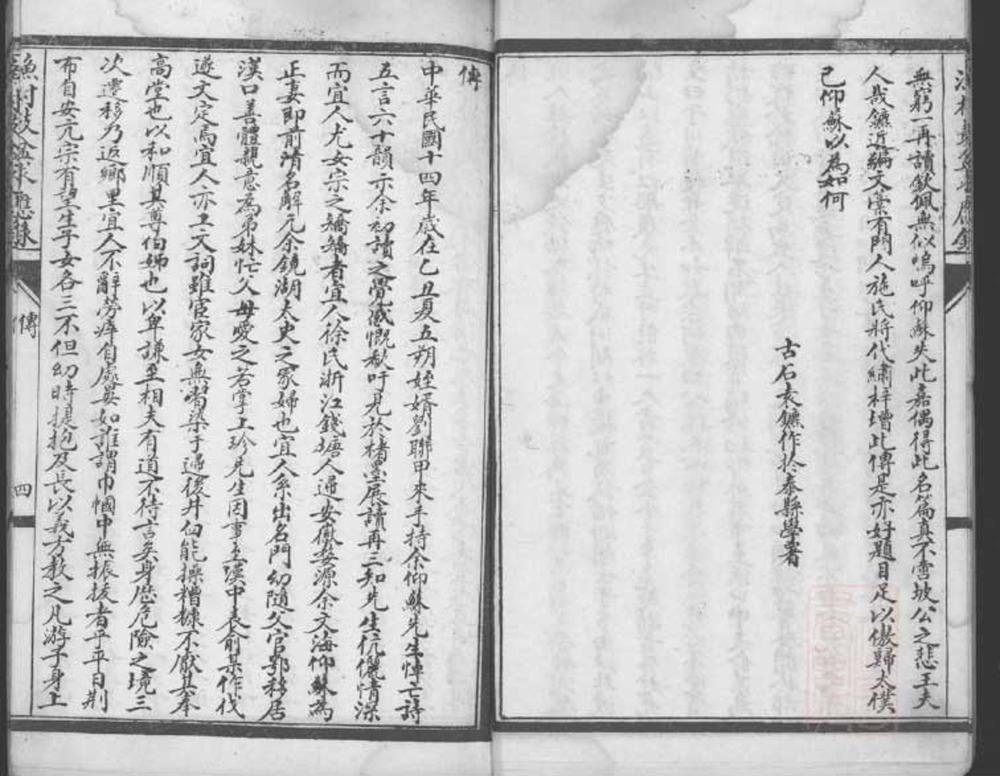 無窮一再讀欽佩無似嗚呼仰蘇失此嘉偶得此名篇真不啻坡公之悲王夫
人哉鑣近編文稾有門人施氏將代繡梓增此傳是亦好題目足以傲歸太僕
已仰蘇以為如何
古石袁鑣作於泰縣學署
傳
中華民國十四年歲在乙丑夏五朔姪婿劉聯甲來手持余仰蘇先生悼亡詩
五言六十韻示余初讀之覺感慨欷吁見於楮墨展讀再三知先生伉儷情深
而宜人尤女宗之矯矯者宜人徐氏浙江錢塘人適安徽婺源余文海仰蘇為
正妻即前清名解元余鏡湖太史之冢婦也宜人系出名門幼隨父官鄂移居
漢口善體親意為弟妹忙父母愛之若掌上珍先生因事至漢中表俞某作伐
遂文定焉宜人亦工文詞雖宦家女無習染于適後井臼能操糟糠不厭其奉
高堂也以和順其尊伯娣也以卑謙至相夫有道不待言矣身歷危險之境三
次遷移乃返鄉里宜人不辭勞瘁自處晏如誰謂巾幗中無振拔者乎平日荆
布自安亢宗有望生子女各三不但幼時提抱及長以義方教之凡游子身上
傳
四